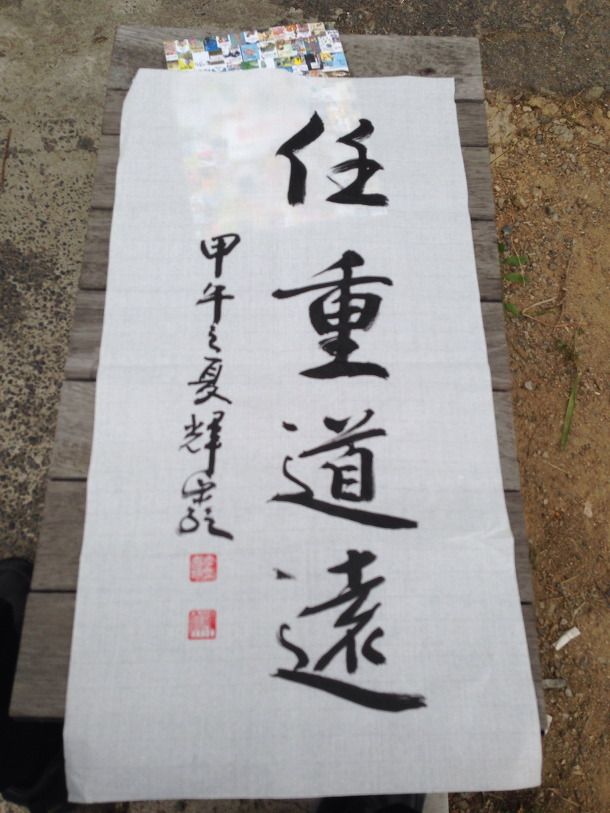 任重道遠
甲午之夏 輝